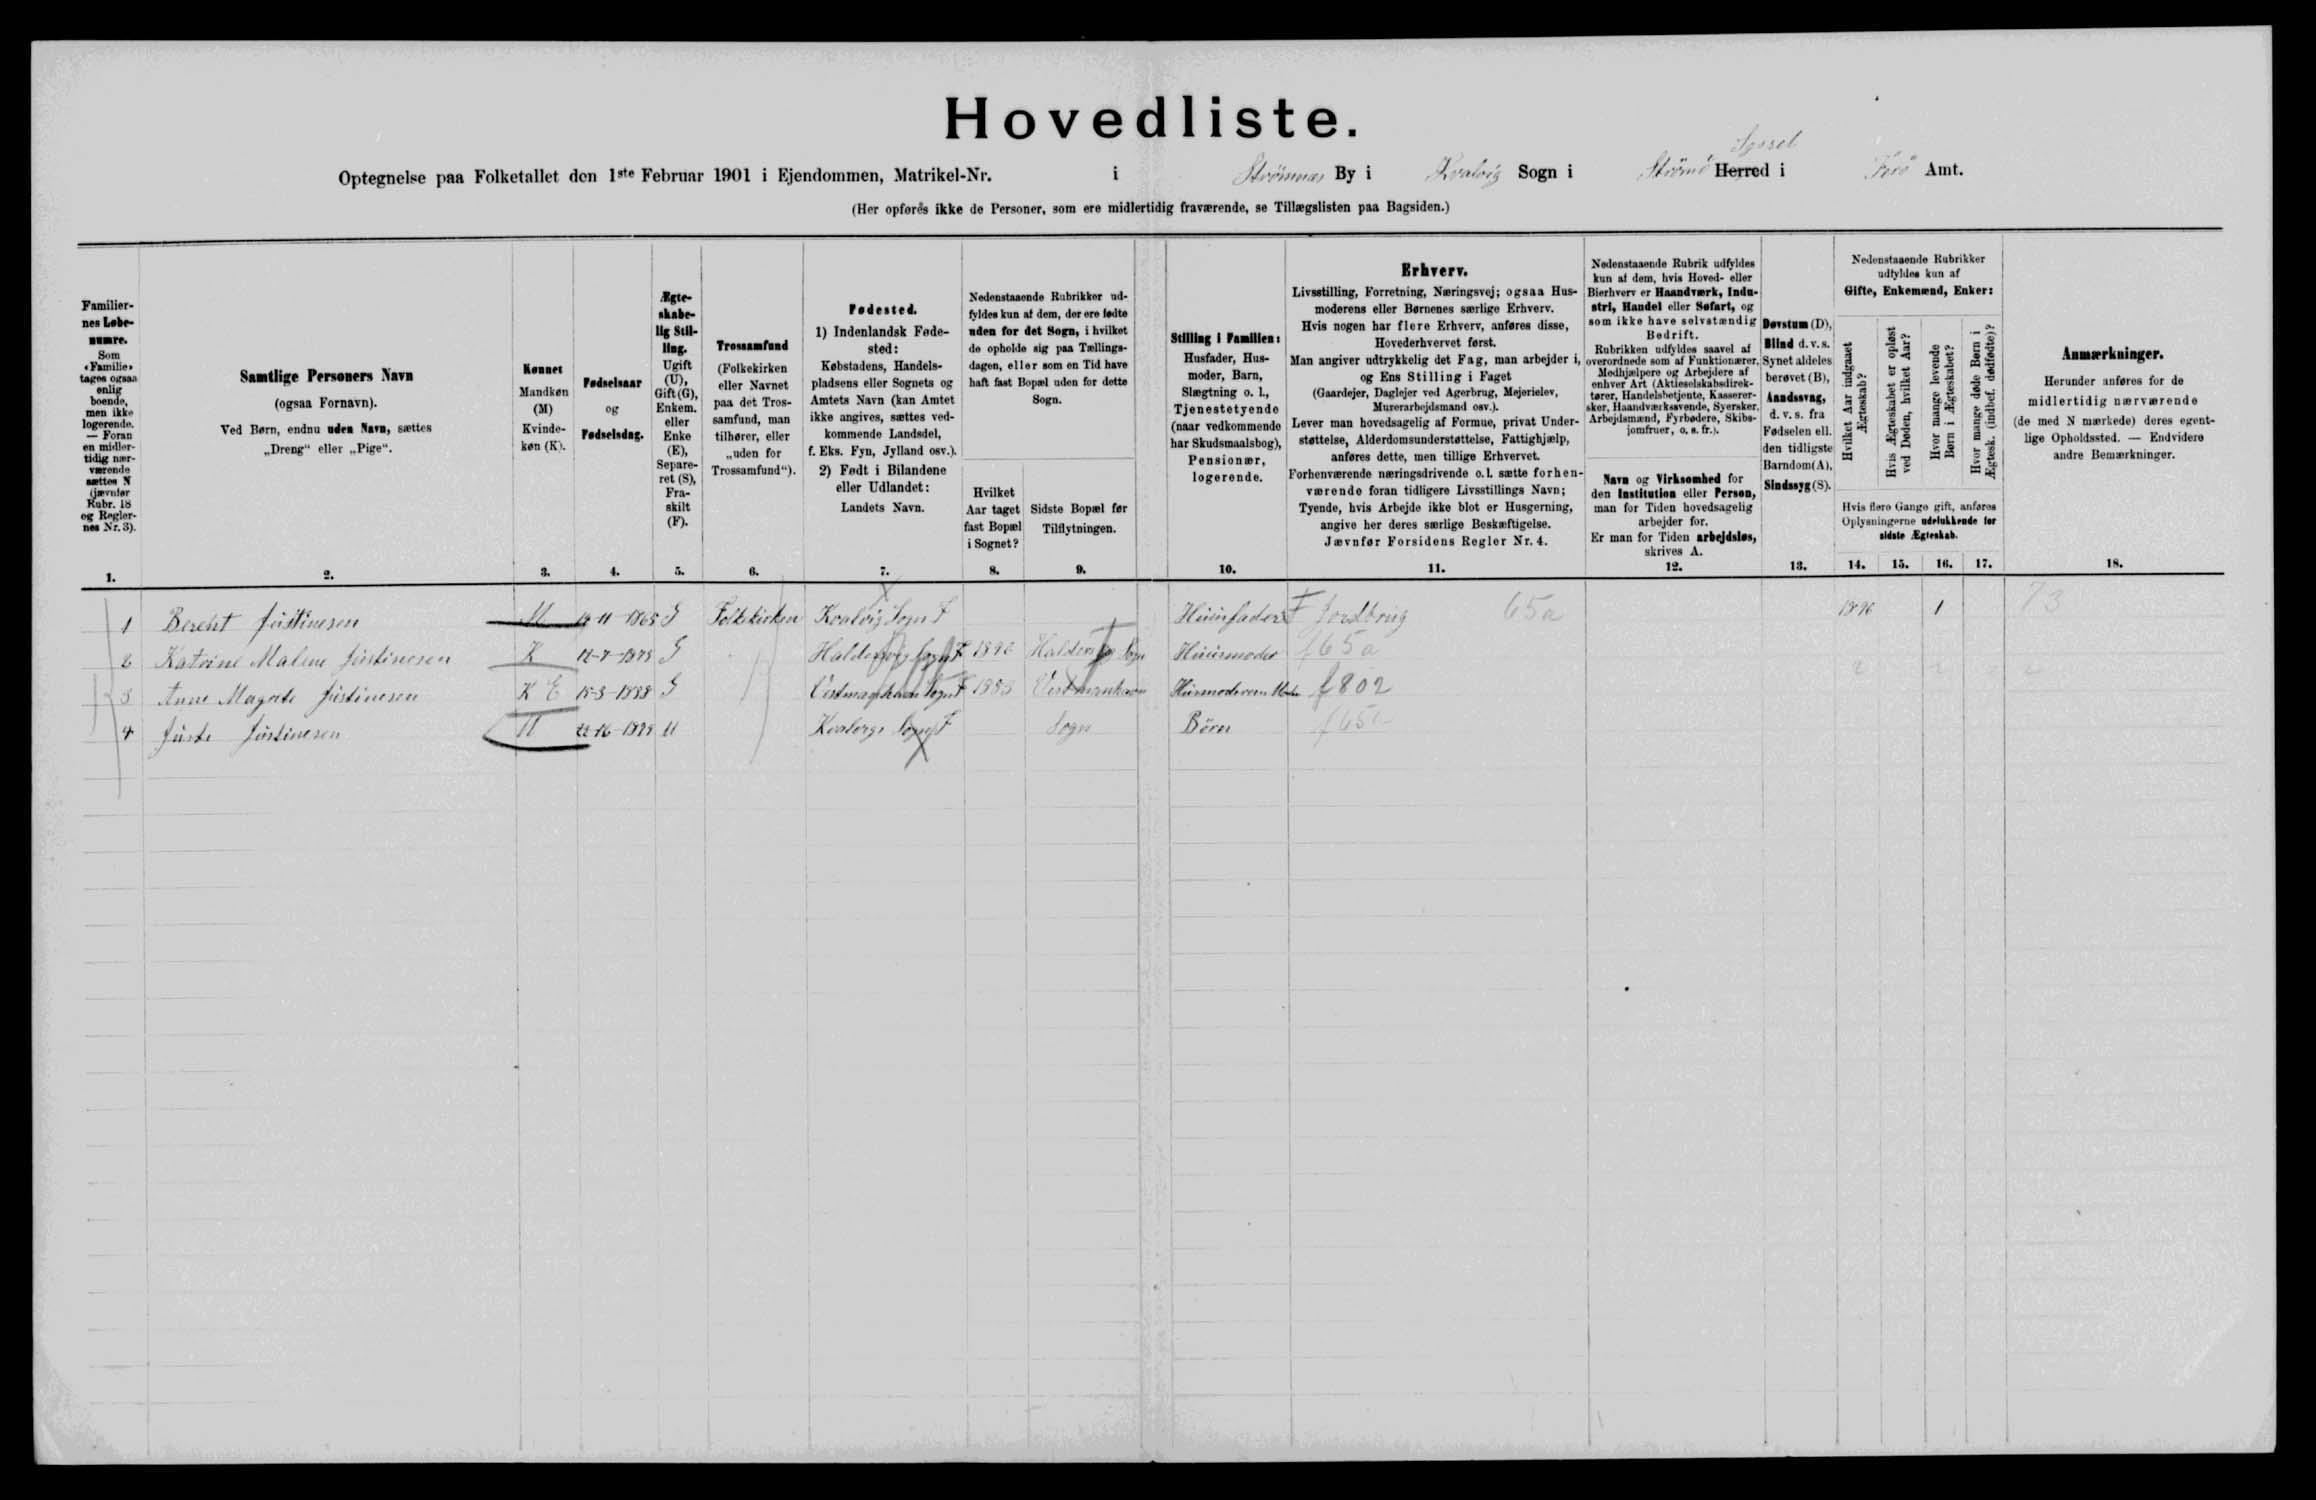 Hovedliste.
Optegnelse paa Folketallet den 1ste Februar 1901 i Ejendommen, Matrikel-Nr. i Strømnæs By i Kvalvig Sogn i Strömö Herred Syssel i Færö Amt.
(Her opføres ikke de Personer, som ere midlertidig fraværende, se Tillægslisten paa Bagsiden.)
Familiernes Løbenumre.
Som «Familie» tages ogsaa enlig boende, men ikke logerende. — Foran en midlertidig nærværende sættes N (jævnfør Rubr. 18 og Reglernes Nr. 3).
1.
Samtlige Personers Navn
(ogsaa Fornavn).
Ved Børn, endnu uden Navn, sættes
„Dreng“ eller „Pige“.
2.
Kønnet
Mandkøn
(M)
Kvinde-
køn (K).
3.
Fødselsaar
og
Fødselsdag.
4.
Ægte-
skabe-
lig Stil-
ling.
Ugift
(U),
Gift (G),
Enkem.
eller
Enke
(E),
Separe-
ret (S),
Fra-
skilt
(F).
5.
Trossamfund
(Folkekirken
eller Navnet
paa det Tros-
samfund, man
tilhører, eller
„uden for
Trossamfund“).
6.
Fødested.
1) Indenlandsk Føde-
sted:
Købstadens, Handels-
pladsens eller Sognets og
Amtets Navn (kan Amtet
ikke angives, sættes ved-
kommende Landsdel,
f. Eks. Fyn, Jylland osv.).
2) Født i Bilandene
eller Udlandet:
Landets Navn.
7.
Nedenstaaende Rubrikker ud-
fyldes kun af dem, der ere fødte
uden for det Sogn, i hvilket
de opholde sig paa Tællings-
dagen, eller som en Tid have
haft fast Bopæl uden for dette
Sogn.
Hvilket
Aar taget
fast Bopæl
i Sognet?
8.
Sidste Bopæl før
Tilflytningen.
9.
Stilling i Familien:
Husfader, Hus-
moder, Barn,
Slægtning o. l.,
Tjenestetyende
(naar vedkommende
har Skudsmaalsbog),
Pensionær,
logerende.
10.
Erhverv.
Livsstilling, Forretning, Næringsvej; ogsaa Hus-
moderens eller Børnenes særlige Erhverv.
Hvis nogen har flere Erhverv, anføres disse,
Hovederhvervet først.
Man angiver udtrykkelig det Fag, man arbejder i,
og Ens Stilling i Faget
(Gaardejer, Daglejer ved Agerbrug, Mejerielev,
Murerarbejdsmand osv.).
Lever man hovedsagelig af Formue, privat Under-
støttelse, Alderdomsunderstøttelse, Fattighjælp,
anføres dette, men tillige Erhvervet.
Forhenværende næringsdrivende o. l. sætte forhen-
værende foran tidligere Livsstillings Navn;
Tyende, hvis Arbejde ikke blot er Husgerning,
angive her deres særlige Beskæftigelse.
Jævnfør Forsidens Regler Nr. 4.
11.
Nedenstaaende Rubrik udfyldes
kun af dem, hvis Hoved- eller
Bierhverv er Haandværk, Indu-
stri, Handel eller Søfart, og
som ikke have selvstændig
Bedrift.
Rubrikken udfyldes saavel af
overordnede som af Funktionærer,
Medhjælpere og Arbejdere af
enhver Art (Aktieselskabsdirek-
tører, Handelsbetjente, Kasserer-
sker, Haandværkssvende, Syersker,
Arbejdsmænd, Fyrbødere, Skibs-
jomfruer, o. s. fr.).
Navn og Virksomhed for
den Institution eller Person,
man for Tiden hovedsagelig
arbejder for.
Er man for Tiden arbejdsløs,
skrives A.
12.
Døvstum (D),
Blind d. v. s.
Synet aldeles
berøvet (B),
Aandssvag,
d. v. s. fra
Fødselen ell.
den tidligste
Barndom (A),
Sindssyg (S).
13.
Nedenstaaende Rubrikker
udfyldes kun af
Gifte, Enkemænd, Enker:
Hvilket Aar indgaaet Ægteskab?
Hvis Ægteskabet er opløst ved Døden, hvilket Aar?
Hvor mange levende Børn i Ægteskabet?
Hvor mange døde Børn i Ægtesk. (indbef. dødfødte)?
Hvis flere Gange gift, anføres
Oplysningerne udelukkende for
sidste Ægteskab.
14. 15. 16. 17.
Anmærkninger.
Herunder anføres for de
midlertidig nærværende
(de med N mærkede) deres egent-
lige Opholdssted. — Endvidere
andre Bemærkninger.
18.
1 Berent Jüstinesen M 19-11-1865 G Folkekirken Kvalvig Sogn F Hüusfader Jordbrug 65a 1896 1 73
2 Katrine Malene Jüstinesen K 12-7-1875 G Haldersvig Sogn F 1896 Haldersvig Sogn Hüusmoder f65a
3 Anne Magrete Jüstinesen K E G Vestmanhavn Sogn F 1883 Vestmanhavn Hüusmoderens Moder f802
4 Jüste Jüstinesen M U Kvalvigs Sogn F Sogn Börn f65